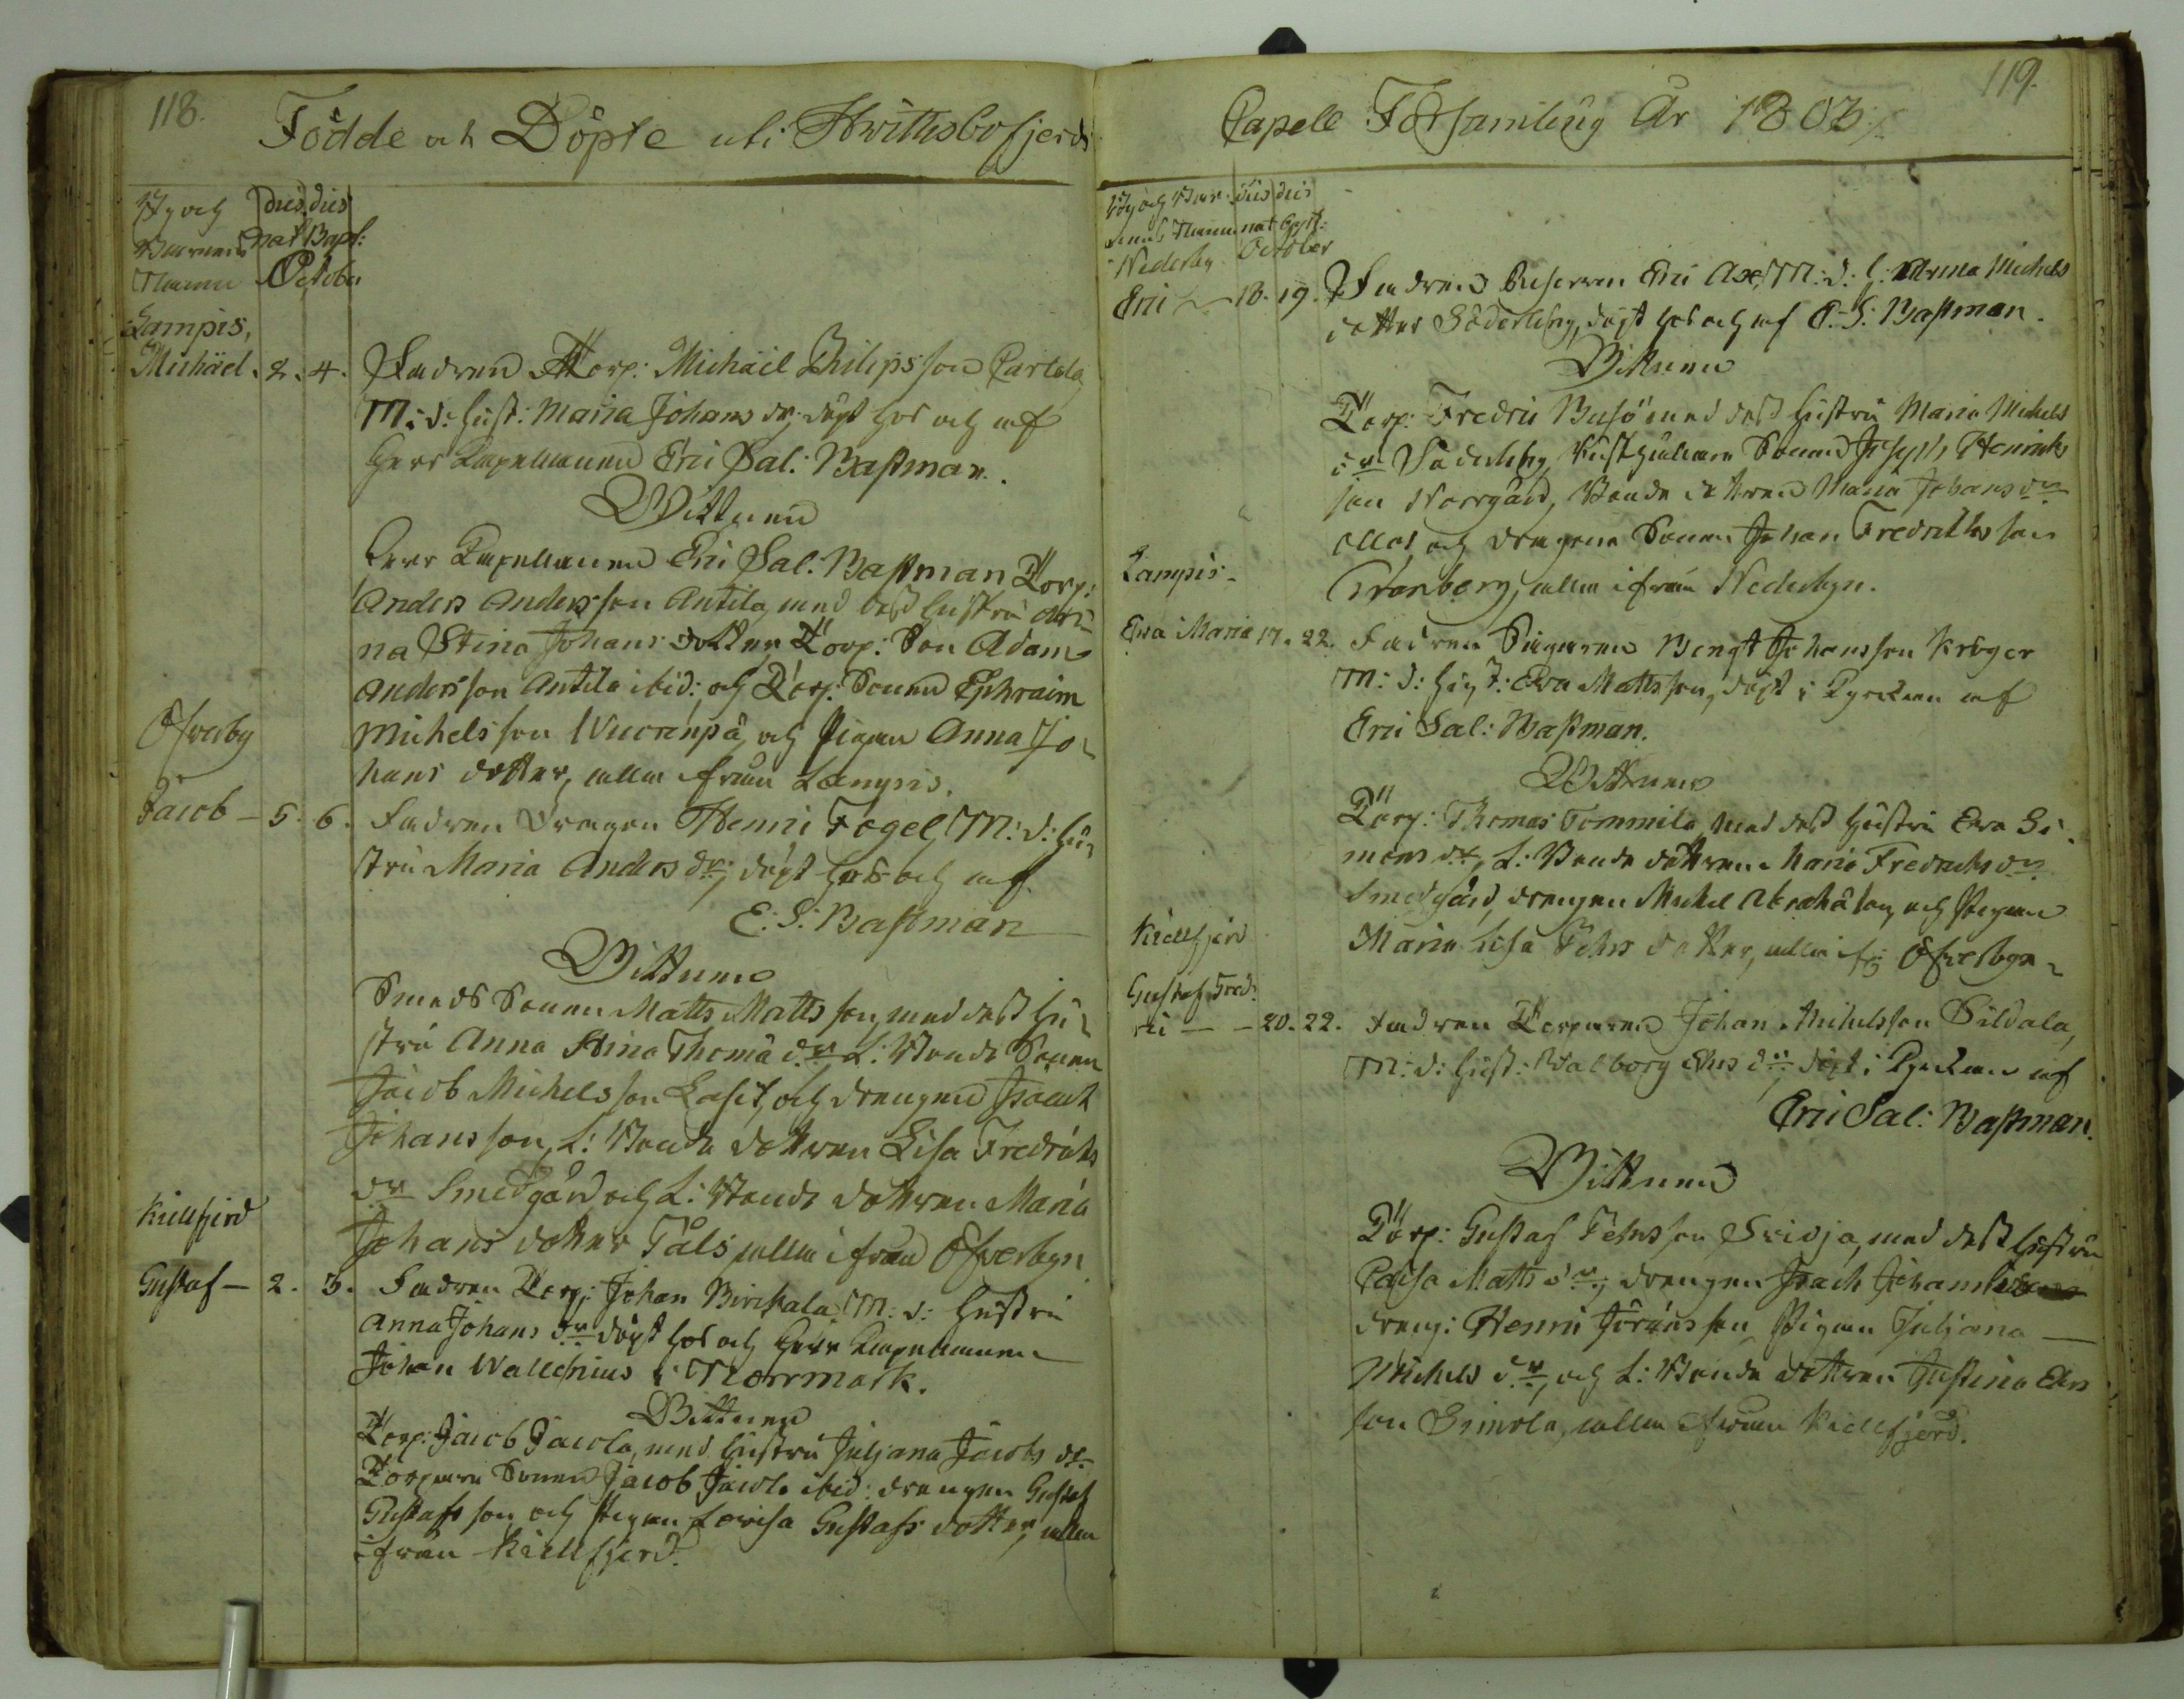 118.
Födde och Döpte uti Hwittisbofjerds
By och
Barnens
Namn
dies dies
nat Bapt:
October
Lampis,
Michäel. 2. 4. Fadren Torp: Michäel Philipsson Cartela
M: d: hust: Maria Johans dr: döpt hos och af
herr Capellanen Eric Sal: Bassman.
Wittnen
herr Capellanen Eric Sal: Bassman Torp:
Anders Andersson Antila, med dess hustru
na Stina Johans dotter, Torp: Son Adam
Andersson Antila ibid: och Torp: Sonen Ephraim
Michelsson Wuorenpä, och Pigan Anna Jo-
hans dotter, alla ifrån Lampis.
Ofverby
Jacob - 5. 6. Fadren Dragon Henric Fogel, M: d: hu-
stru Maria Anders dr: döpt hos och af
E: S: Bassman
Wittnen
Smeds Sonen Matts Mattsson, med dess hu-
stru Anna Stina Thomä dr L: Bonde Sonen
Jacob Michelsson Lasit, och drengen Isaack
Johansson, L: Bonde dottren Lisa Fredricks
dr Smedgård, och L: Bonde dottren Maria
Johans dotter Påls alla ifrån Ofverbyn
Kiellfjerd
Gustaf - 2. 3. Fadren Torp: Johan Birckala, M: d: hustru
Anna Johans dr döpt hos och herr Capellanen
Johan Wallenius i Norrmark.
Wittnen
Torp: Jacob Jacola, med hustru Juljana Jacobs dr
Torpare Sonen Jacob Jacola ibid: drengen Gustaf
Gustafsson och Pigan Lovisa Gustafs dotter, alla
ifrån Kiellfjerd.
119.
Capell Församling År 1803
By och Bar- dies dies
nens Namn nat Bapt:
Nederby October
Eric - 18. 19. Fadren Eric Ax, M: d: h: Anna Michels
dotter Söderling, döpt hos och af E: S: Bassman.
Wittnen
Torp: Fredric Busö med dess hustru Maria Michels
dr Söderling, Rusthållare Sonen Joseph Henricks
son Norrgård, Bonde dottren Maria Johans dr
Ollas, och dragone Sonen Johan Fredricksson
Cronberg, alla ifrån Nederbyn.
Lampis -
Eva Maria 17. 22. Fadren Bengt Johansson Kröger
M: d: hust: Eva Mattsson, döpt i Kyrckan af
Eric Sal: Bassman.
Wittnen
Torp: Thomas Tommila, med dess hustru Eva Si-
mons dr, L: Bonde dottren Maria Fredricks dr
Smedgård, drengen Michel Abrahäson, och Pigan
Maria Lisa dotter, alla ifr: Ofverbyn
Kiellfjerd
Gustaf Fred-
ric - - 20. 22. Fadren Torparen Johan Michelsson Sildala,
M: d: hust: Walborg Ers dr: döpt i Kyrckan af
Eric Sal: Bassman.
Wittnen
Torp: Gustaf Pehrsson Svidja, med dess hustru
Caisa Matts dr: drengen Isach Johansson
dreng: Henric Jöransson Pigan Juljana -
Michels dr, och L: Bonde dottren Justina Ers
son Simola, alla ifrån Kiellfjerd.